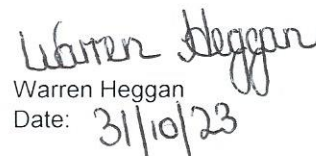 Warren Heggan
Warren Heggan
Date: 31/10/23